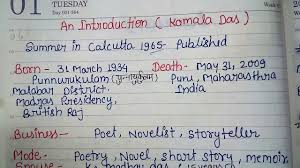 01 TUESDAY
Day 001-364
An Introduction (Kamala Das)
Summer in Calcutta 1965- Published
Born- 31 March 1934 Death- May 31, 2009
Punnurukulam (पुन्नायुर्कुलम) Pune, Maharasthra
Malabar District. India
Madras Presidency,
British Raj
Business- Poet, Novelist, storyteller
Mode- Poetry, Novel, short story, memoir